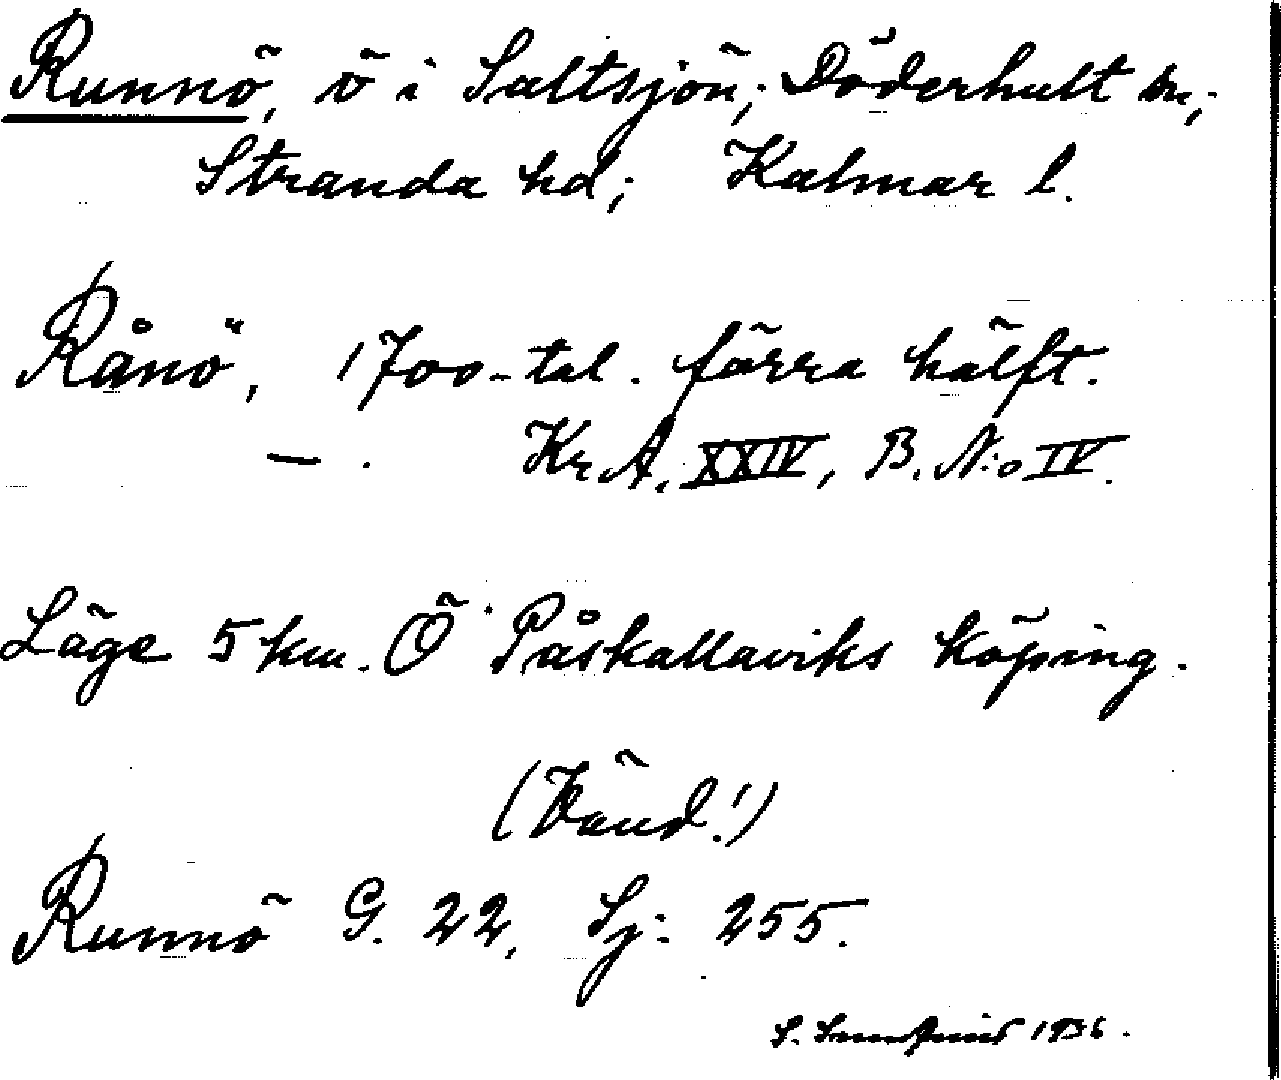 Runnö, ö i Saltsjön; Döderhult sn;
Stranda hd; Kalmar l.
Rånö, 1700-tal. förra hälft.
— . Kr A. XXIV, B. N:o IV.
Läge 5 km. Ö Påskallaviks köping.
(Vänd!)
Runnö G. 22, Sj: 255.
S. 1936.